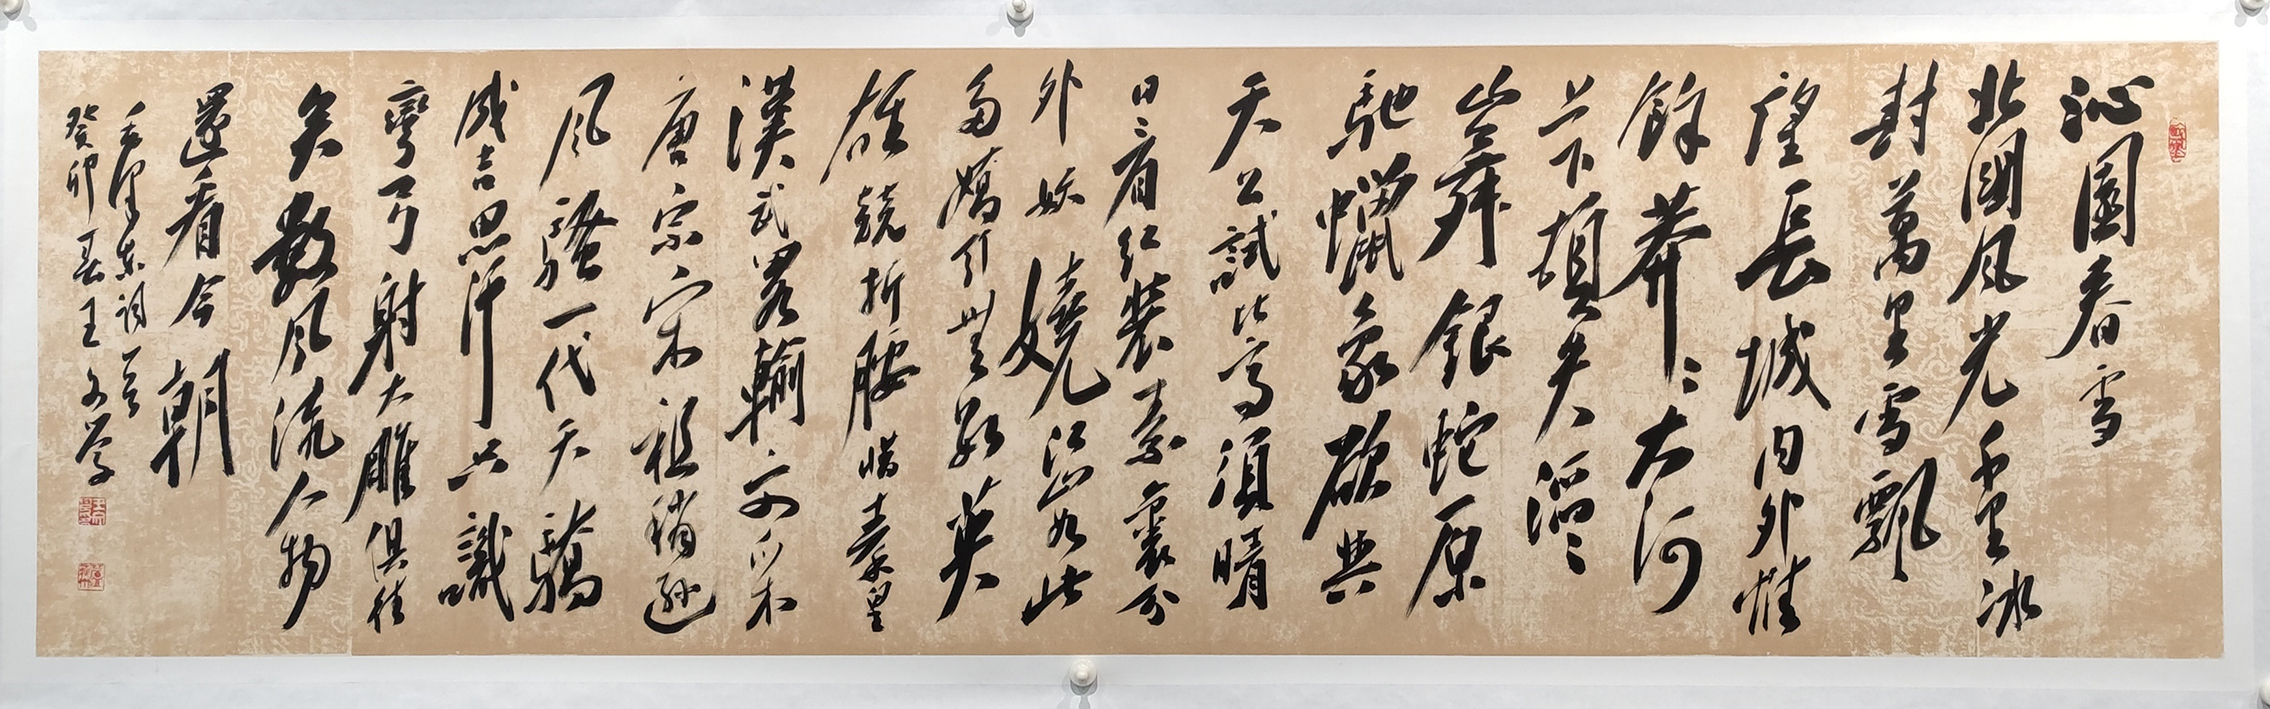 沁園春雪
北國风光千里冰
封萬里雪飄
望長城内外惟
餘莽〻大河
上下頓失滔〻
山舞銀蛇原
馳蠟象欲與
天公試比高須晴
日〻看红裝素裹分
外妖嬈江山如此
多嬌引無數英
雄競折腰惜秦皇
漢武畧輸文采
唐宗宋祖稍遜
风騷一代天驕
成吉思汗只識
彎弓射大雕俱往
矣數风流人物
還看今朝
毛澤东詞一首
癸卯春王文学